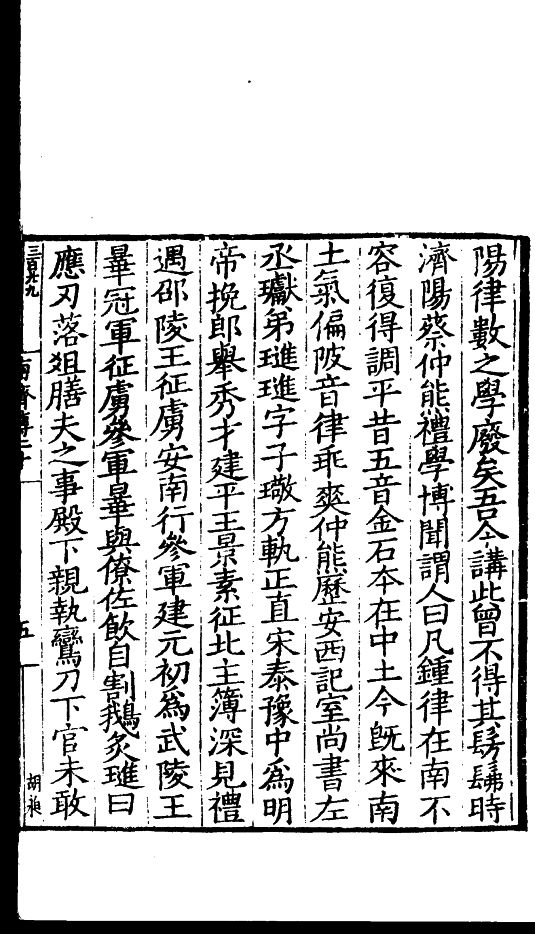 陽律數之學廢矣吾今講此曽不得其髣髴時
濟陽蔡仲熊禮學博聞謂人曰凡鍾律在南不
容復得調平昔五音金石夲在中土今旣來南
土氣偏陂音律乖爽仲熊歷安西記室尚書左
丞瓛弟璡璡字子璥方軌正直宋泰豫中爲明
帝挽郎舉秀才建平王景素征北主簿深見禮
遇邵陵王征虜安南行參軍建元初爲武陵王
曅冠軍征虜參軍曅與僚佐飲自割鵝炙璡曰
應刃落俎膳夫之事殿下親執鸞刀下官未敢
五